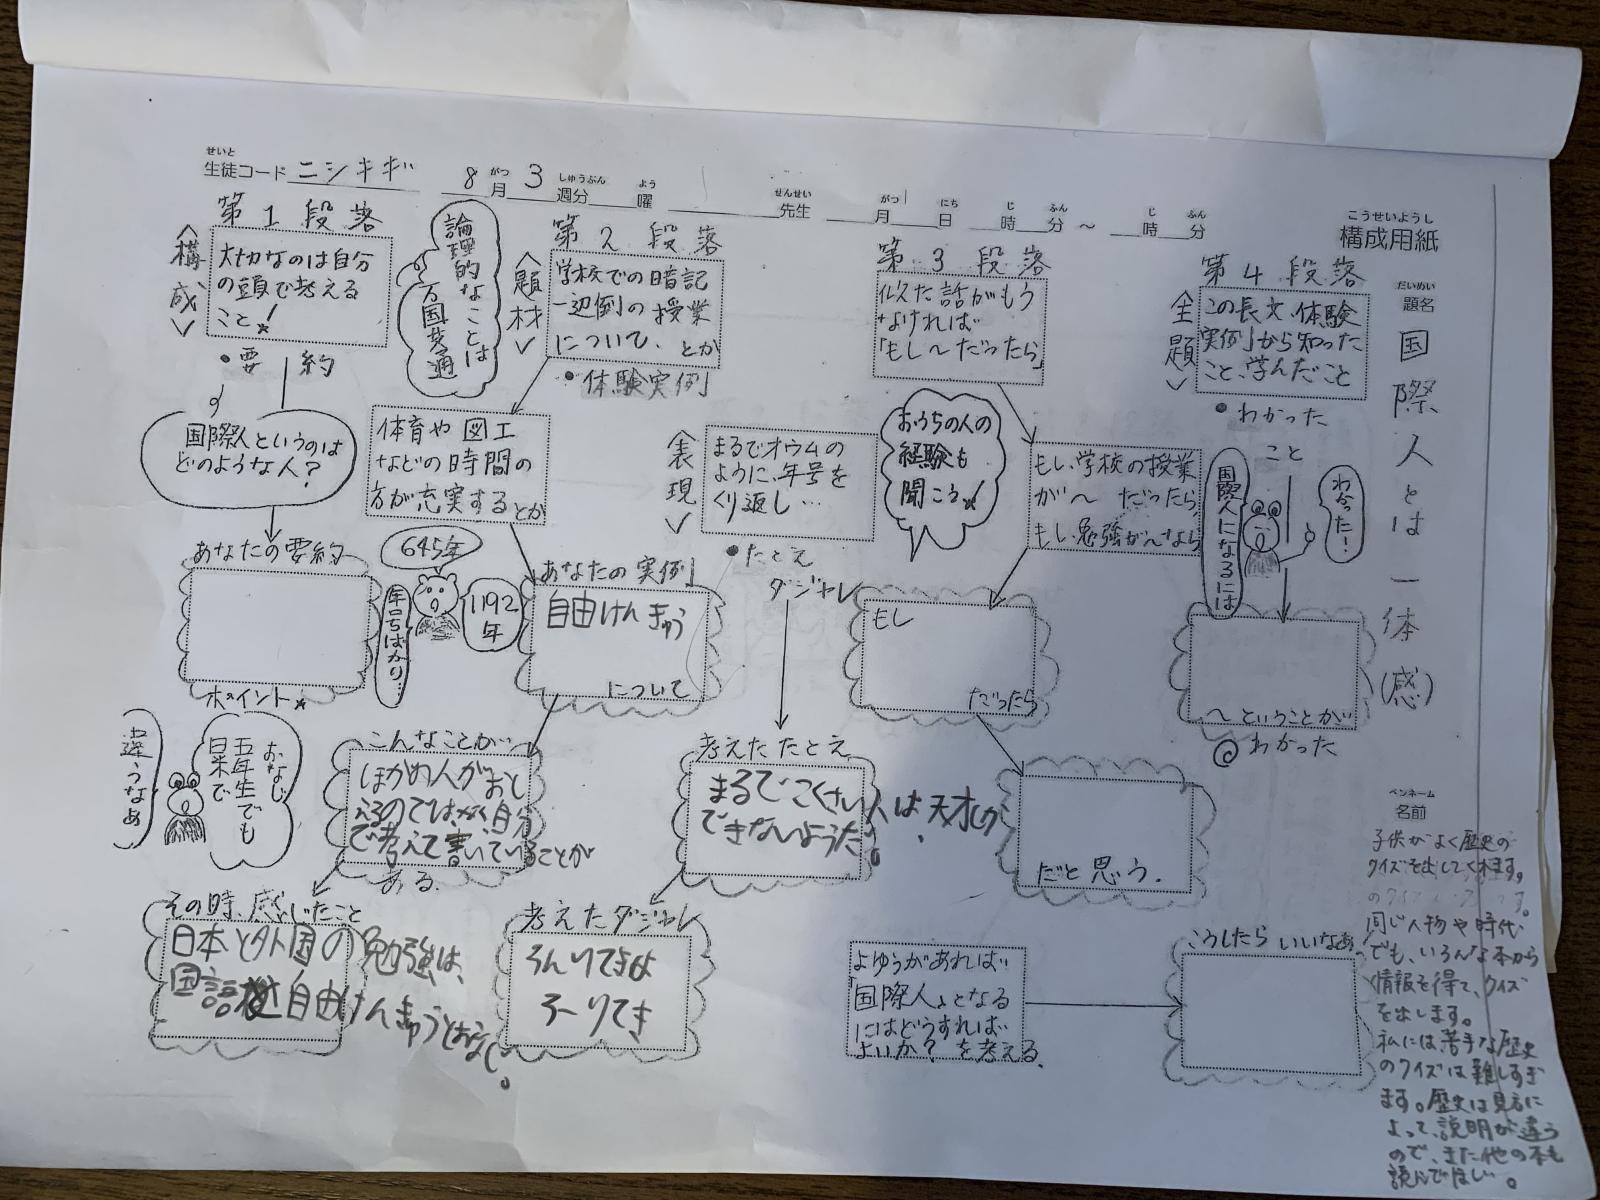 せいと
生徒コード ニシキギ
8月3週分 曜 先生 月 日 時 分 ～ 時 分
がつ しゅうぶん よう せんせい がつ にち じ ふん じ ふん
こうせいようし
構成用紙
だいめい
題名
国際人とは一体(感)
ペンネーム
名前
第1段落
〈構成〉
大切なのは自分
の頭で考える
こと!
•要約
国際人というのは
どのような人?
あなたの要約
ポイント
論理的なことは
万国共通
第2段落
〈題材〉
学校での暗記
一辺倒の授業
について、とか
•体験実例
体育や図工
などの時間の
方が充実するとか
あなたの実例
自由けんきゅう
について
645年
1192年
年号ばかり…
こんなことが…
ほかの人がおし
えるのではなく、自分
で考えて書いていることが
ある。
おなじ
五年生でも
日米で
違うなぁ
その時、感じたこと
日本と外国の勉強は、
国語 自由けんきゅうとはなし。
第3段落
似た話がもう
なければ
「もし～だったら」
おうちの人の
経験も
聞こう!
もし、学校の授業
が～だったら、
もし勉強が～なら
もし
だったら
だと思う。
〈表現〉
まるでオウムの
ように、年号を
くり返し…
•たとえ
ダジャレ
考えたたとえ
まるでこくさい人は、天才しか
できないようだ。
考えたダジャレ
ろんりてきは
ろーりてき
第4段落
〈主題〉
この長文、体験
実例から知った
こと、学んだこと
•わかった
こと
国際人になるには
わ分った!…
～ということが
わかった
よゆうがあれば
「国際人」となる
にはどうすれば
よいか?を考える。
こうしたらいいなあ
子供がよく歴史の
クイズを出してくれます。
同じ人物や時代
でも、いろんな本から
情報を得て、クイズ
を出します。
私には、苦手な歴史
のクイズは難しすぎ
ます。歴史は見方に
よって、説明が違う
ので、また他の本も
読んでほしい。